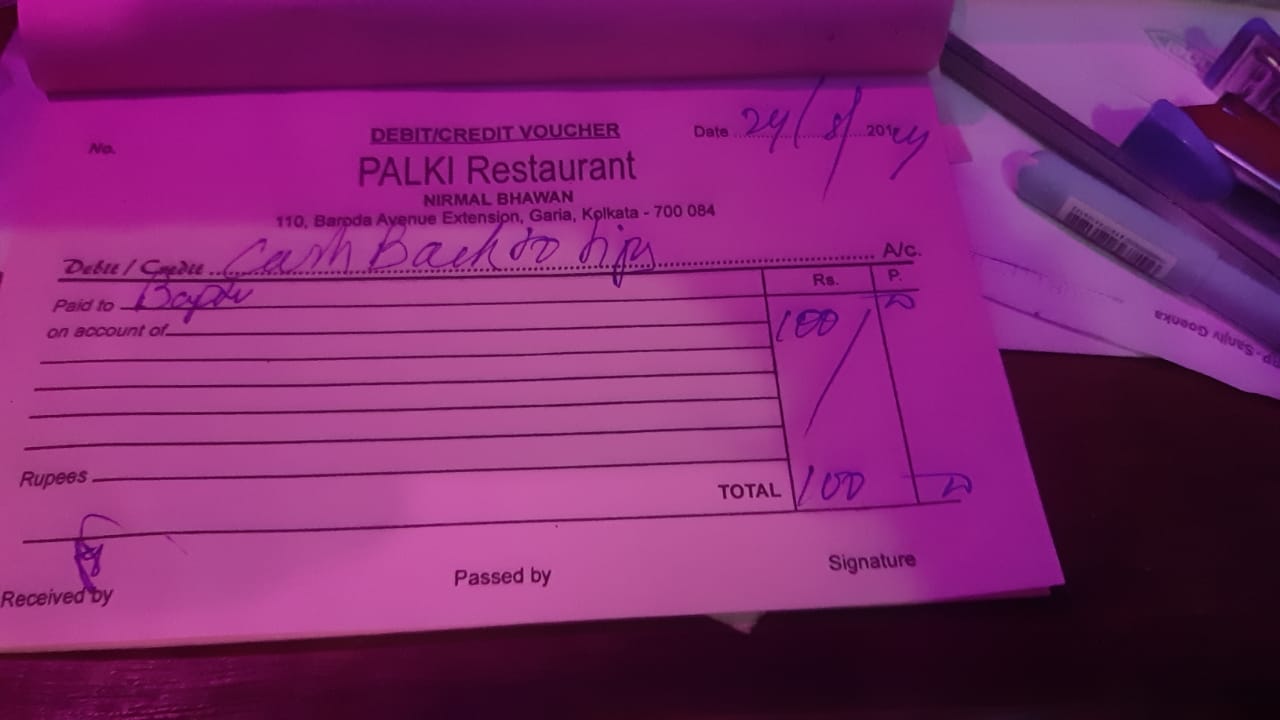 DEBIT/CREDIT VOUCHER
No.
Date 24/8/ 201
PALKI Restaurant
NIRMAL BHAWAN
110, Baroda Avenue Extension, Garia, Kolkata - 700 084
Debit / Credit Cash Back to tips A/c.
Rs. P.
Paid to
on account of 100/
Rupees
TOTAL 100
Received by Passed by Signature
Sanjiv Goenka